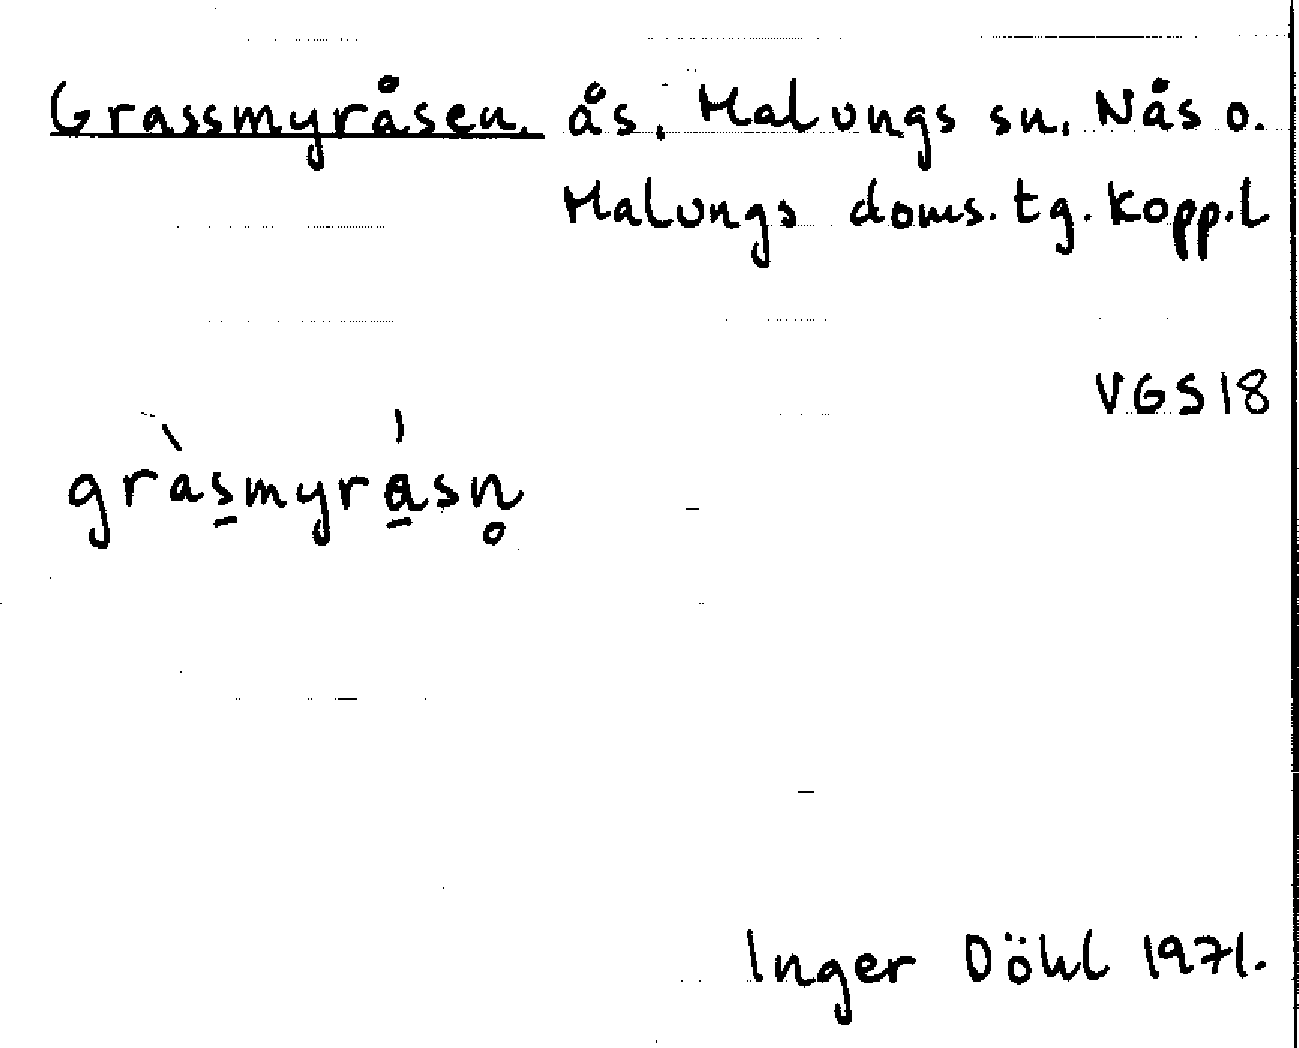 Grassmyråsen, ås, Malungs sn, Nås o.
Malungs doms.tg. Kopp.l
VGS18
gràs̠myrá̠sn̥
Inger Döhl 1971.